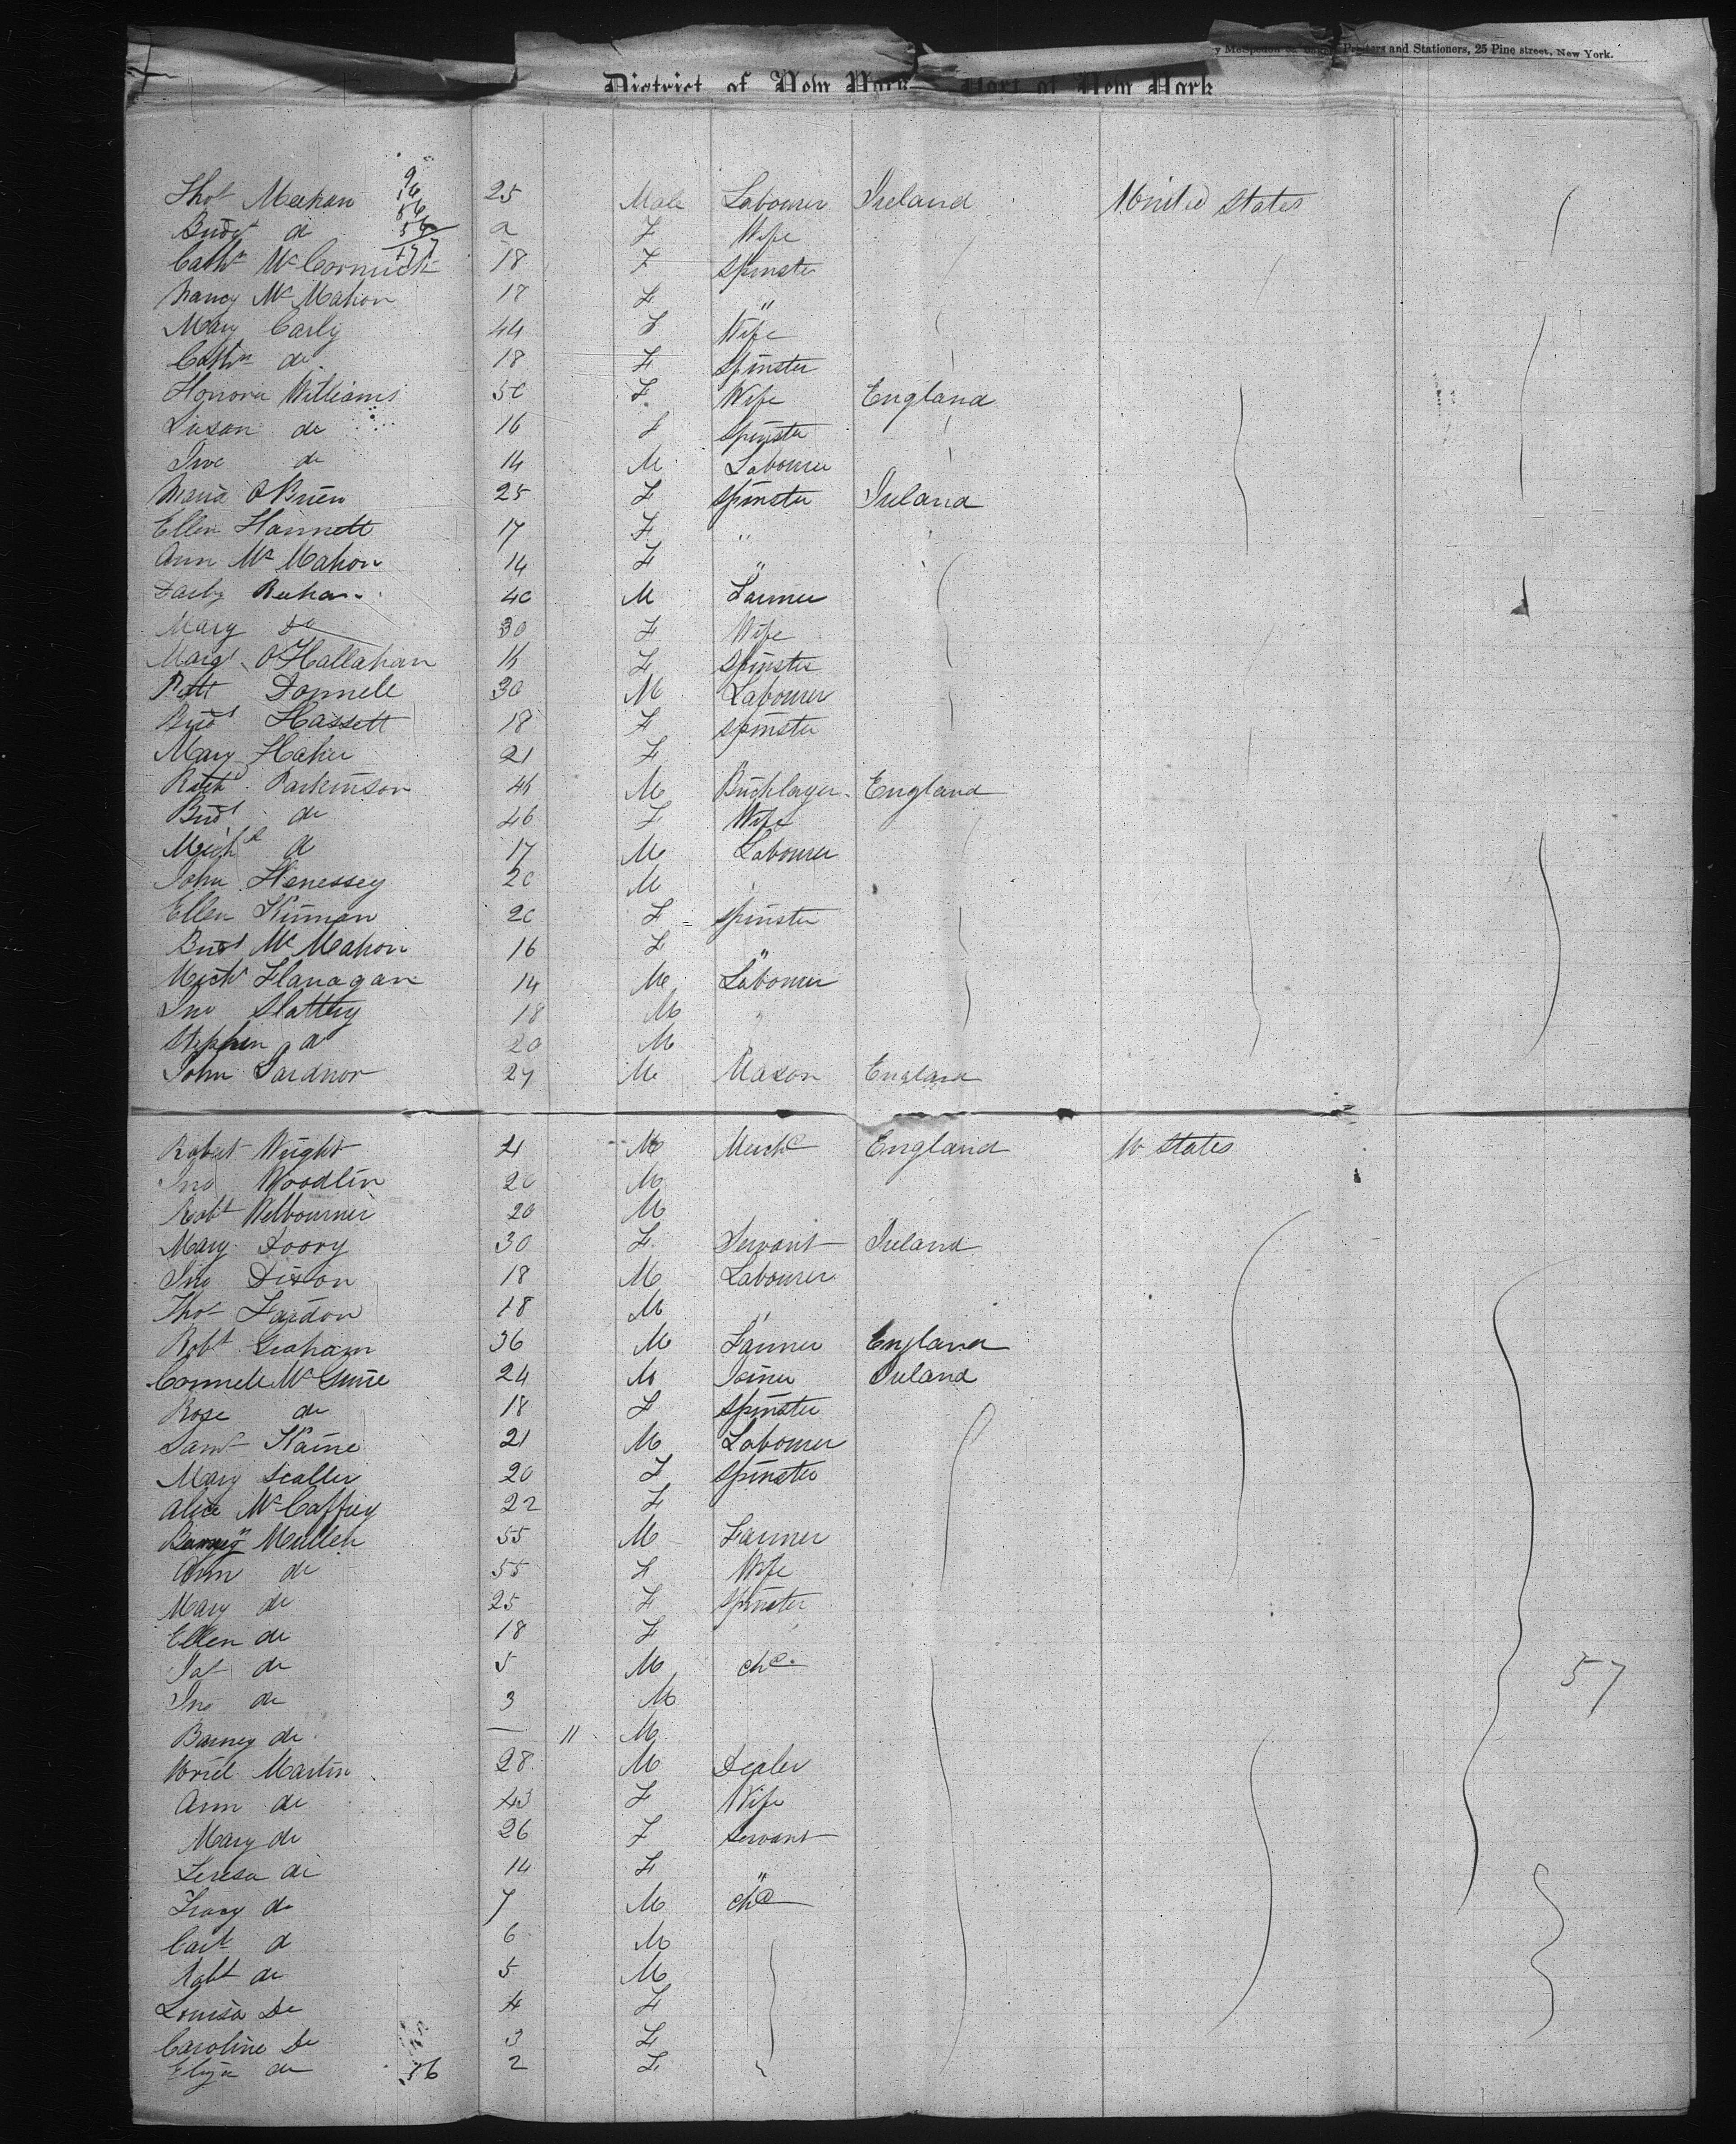 Printers and Stationers, 25 Pine street, New York.
District of New York Port of New York
Thos Meehan 25 Male Labourer Ireland United States
Bridgt do F Wife
Cathn McCormick 18 F Spinster
Nancy McMahon 18 F "
Mary Carly 44 F Wife
Cathn do 18 F Spinster
Honora Williams 50 F Wife England
Susan do 16 F Spinster
Jno do 14 M Labourer
Maria O'Brien 25 F Spinster Ireland
Ellen Hannett 17 F "
Ann McMahon 14 F "
Darby 40 M Farmer
Mary do 30 F Wife
Margt O'Hallahan F Spinster
Patt Donnell 30 M Labourer
Bridt Hassett 18 F Spinster
Mary 21 F
Parkinson M Bricklayer England
Bridt do 46 F Wife
Michl do 17 M Labourer
John Henessey 20 M
Ellen 20 F Spinster
Bridt McMahon 16 F "
Michl Flanagan 14 M Labourer
Jno Slattery 18 M "
Stephen do 20 M
John Gardnor 27 M Mason England
Robert Wright 21 M England U States
Jno Woodlin 20 M
Robt Welbourner 20 M
Mary 30 F Servant Ireland
Jno Dixon 18 M Labourer
Thos Fardon 18 M "
Robt Graham 36 M Farmer England
Connell McGuire 24 M Joiner Ireland
Rose do 18 F Spinster
Saml 21 M Labourer
Mary 20 F Spinster
Alice McCaffrey 22 F
Barney Mullen 55 M Farmer
Ann do 55 F Wife
Mary do 25 F Spinster
Ellen do 18 F
Pat do 5 M chd
Jno do 3 M
57
Barney do — 11 M
Martin 28 M Dealer
Ann do 43 F Wife
Mary do 26 F Servant
Teresa do 14 F "
do 7 M chd
do 6 M
Robt do 5 M
Louisa Do 4 F
Caroline Do 3 F
Eliza do 56 2 F